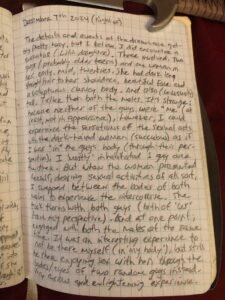 Dear Moore 7th 2024 (Night of)
The details and events of the dream are get-
ing pretty hazy, but I believe I did encounter a
succubus (with others). Three involved. Two
guys (probably older teens) and the woman,
her early, mid, twenties. She had dark long
straight hair to her shoulders, beautiful face and
voluptuous curvy body. and also (succubus')
tail. Taller than both the males. It's strange;
because neither of the guys were "me" (at
least, not in appearance). However, I could
experience the sensations of the sexual acts
with the dark-haired women (succubus) as if
I was "in" the guys body (through their per-
spective). I mostly inhabited 1 guy more
further. But when the woman presented
herself, desiring sexual activities of all sort,
I swapped between the bodies of both
males to experience the intercourse. She
took turns with both guys (both of "us"
from my perspective). And at one point,
engaged with both the males at the same
time. It was an interesting experience to
not be there myself (in my body), but still
be there enjoying sex with her through the
bodies/eyes of two random guys instead.
Very curious and enlightening experience.